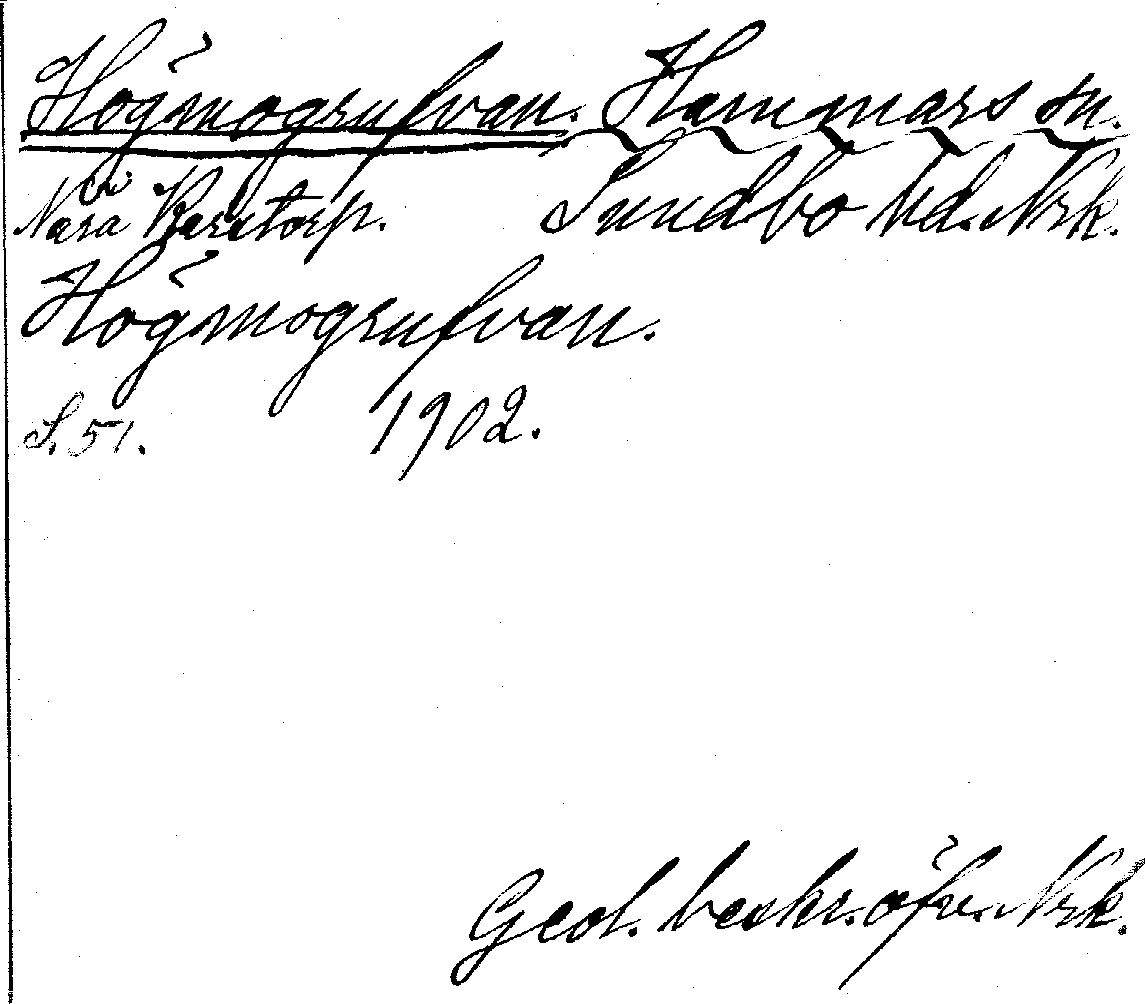 Högmogrufvan. Hammars sn.
Nära Kärstorp. Sundbo hd. Nrk.
Högmogrufvan.
S. 51. 1902.
Geol. beskr. öfv. Nrk.